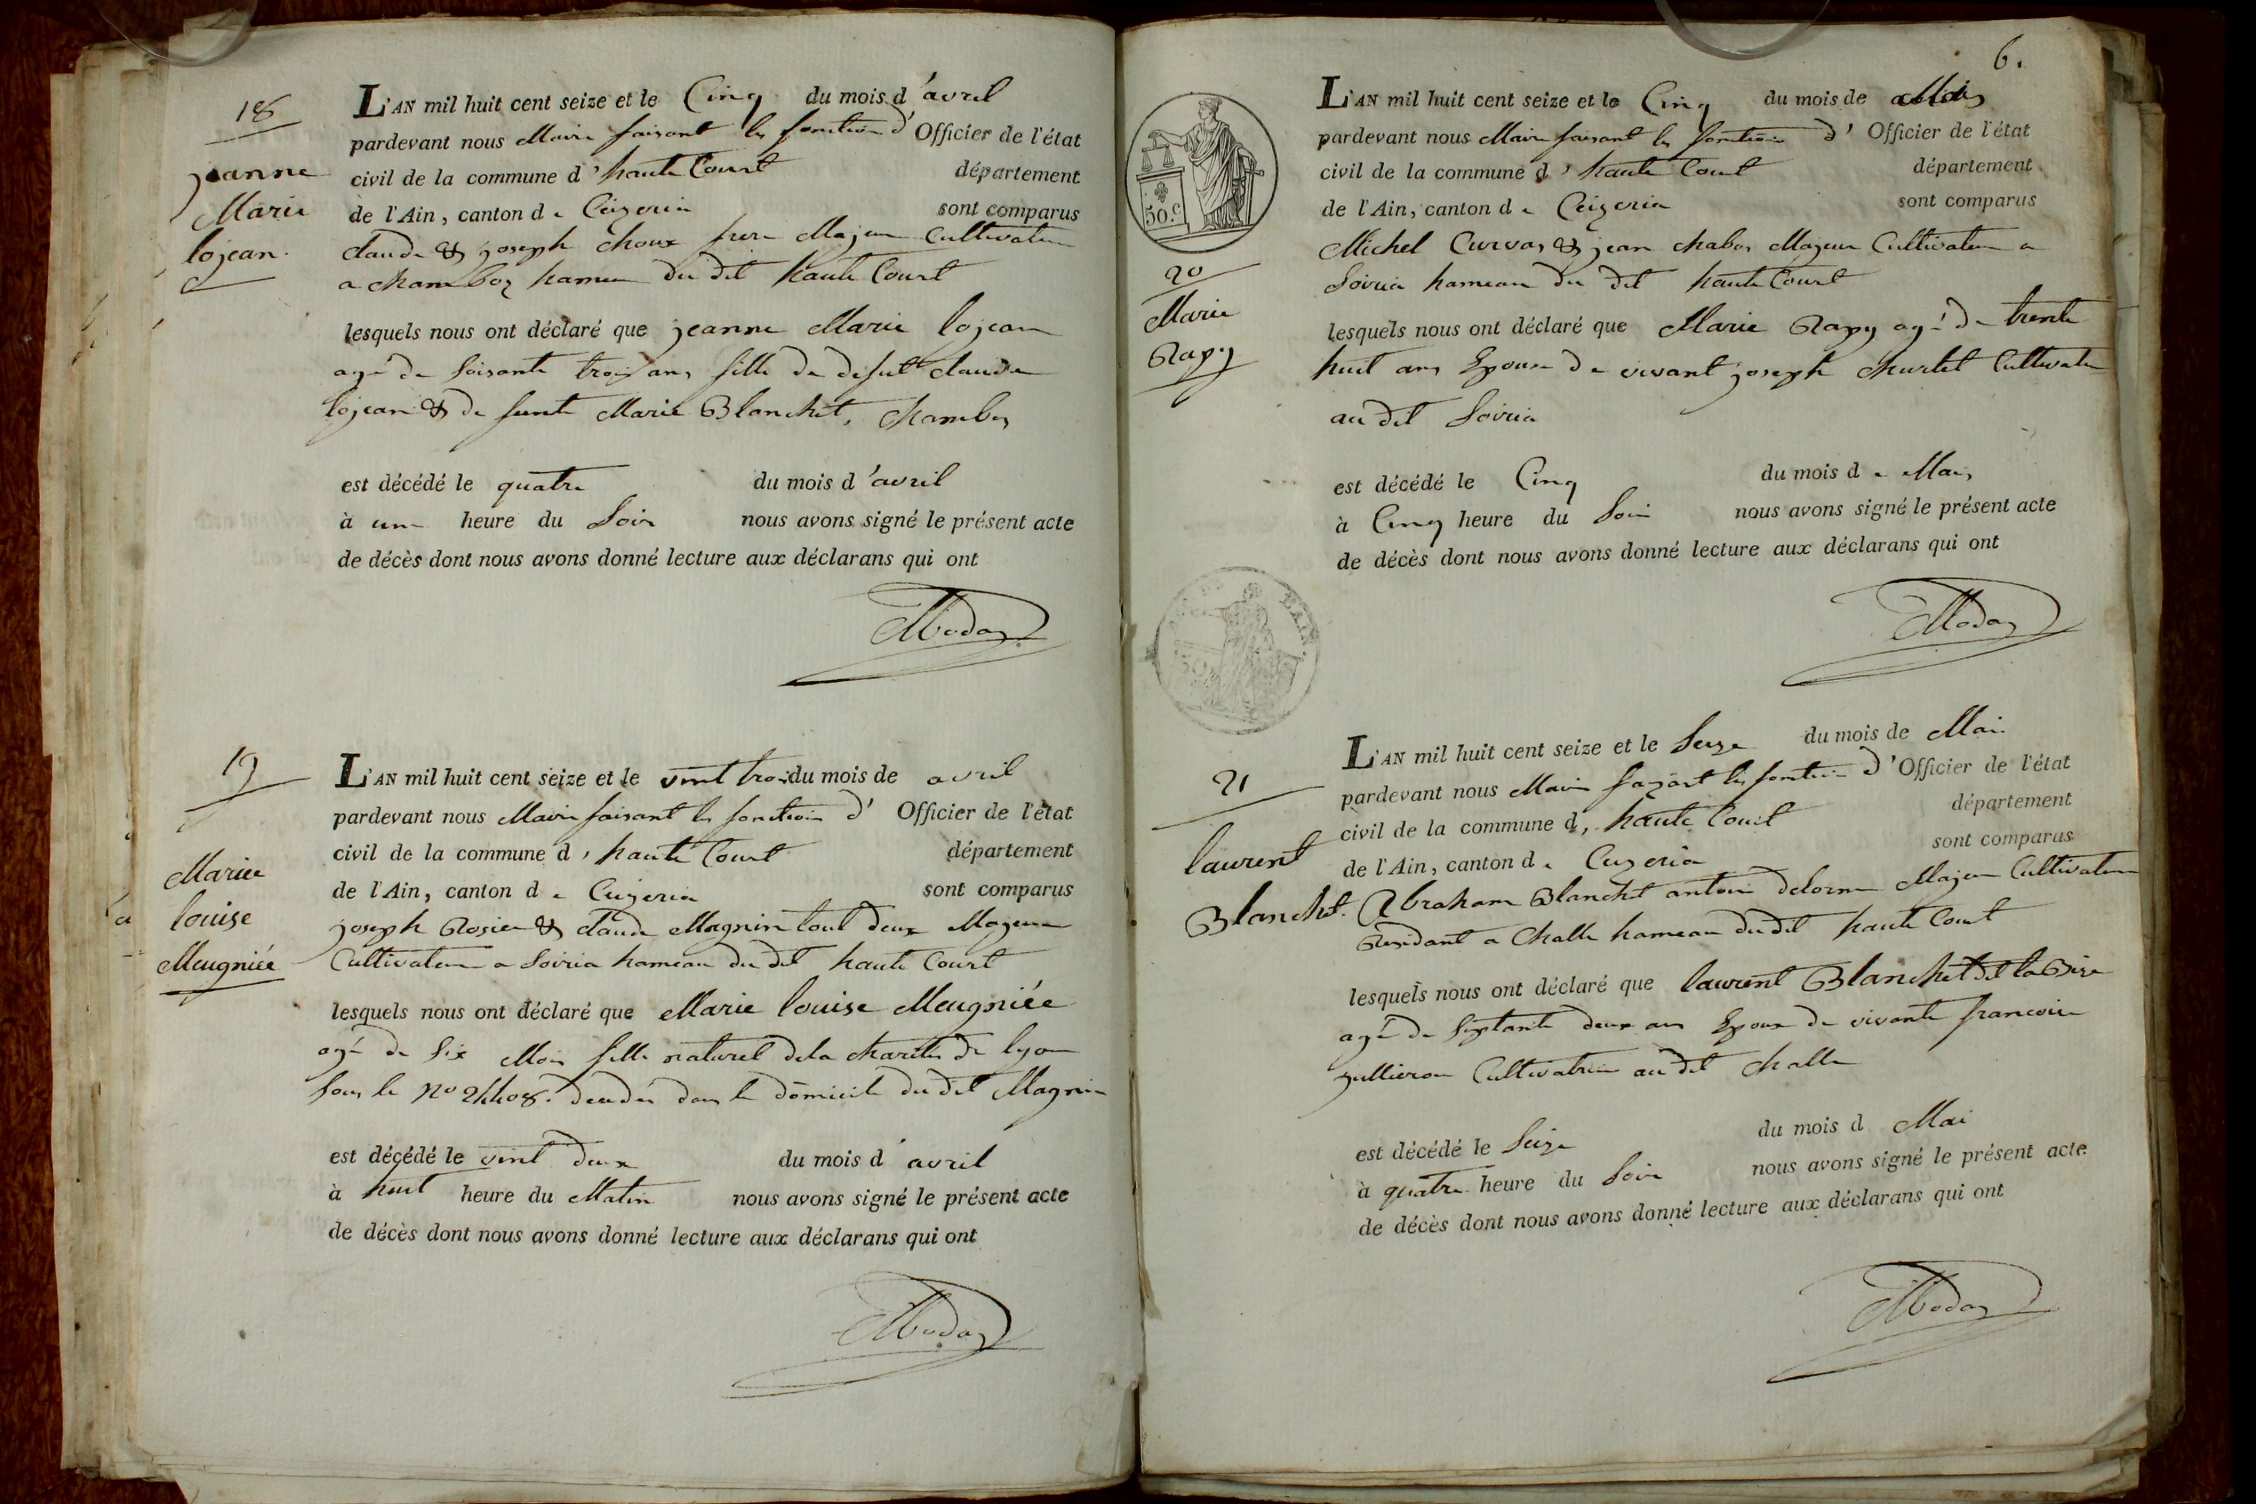 18
jeanne
Marie
lojean.
L'AN mil huit cent seize et le Cinq du mois d'avril
pardevant nous Maire faisant les fonction d'Officier de l'état
civil de la commune d'haute Court département
de l'Ain, canton de Ceizeria sont comparus
claude & joseph choux frere Majeur Cultivateur
a chamboz hameau du dit haute Court
lesquels nous ont déclaré que jeanne Marie lojean
agé de soisante trois ans fille de defut claude
lojean & de funte Marie Blanchet, chambos
est décédé le quatre du mois d'avril
à une heure du Soir nous avons signé le présent acte
de décès dont nous avons donné lecture aux déclarans qui ont
19
Marie
louise
Meugniée
L'AN mil huit cent seize et le vint trois du mois de avril
pardevant nous Maire faisant les fonction d' Officier de l'état
civil de la commune d, haute Court département
de l'Ain, canton de Ceizeria sont comparus
joseph Rosier & claude Magnin tout deux Majeur
Cultivateur a Soiria hameau du dit haute Court
lesquels nous ont déclaré que Marie louise Meugniée
agé de six Mois fille naturel dela charités de lyon
sous le No 24408. decedés dans le domicile du dit Magnin
est décédé le vint deux du mois d'avril
à huit heure du Matin nous avons signé le présent acte
de décès dont nous avons donné lecture aux déclarans qui ont
6.
50.c
20
Marie
Rapy
L'AN mil huit cent seize et le Cinq du mois de Mais
pardevant nous Maire faisant les fonction d' Officier de l'état
civil de la commune d, haute Court département
de l'Ain, canton de Ceizeria sont comparus
Michel Curvas & jean chabos Majeur Cultivateur a
Soiria hameau du dit haute Court
lesquels nous ont déclaré que Marie Rapy agé de trente
huit ans Epouse de vivant joseph churlet Cultivateur
au dit Soiria
est décédé le Cinq du mois de Mais
à Cinq heure du Soir nous avons signé le présent acte
de décès dont nous avons donné lecture aux déclarans qui ont
21
laurent
Blanchet.
L'AN mil huit cent seize et le Seize du mois de Mai
pardevant nous Maire fasant les fonction d'Officier de l'état
civil de la commune d, haute Court département
de l'Ain, canton de Ceizeria sont comparus
Abraham Blanchet antoine delorme Majeur Cultivateur
Residant a Challe hameau du dit haute Court
lesquels nous ont déclaré que laurent Blanchet dit la Bize
agé de septante deux ans Epoux de vivante francoise
jullieron Cultivatrice au dit challe
est décédé le Seize du mois d Mai
à quatre heure du Soir nous avons signé le présent acte
de décès dont nous avons donné lecture aux déclarans qui ont